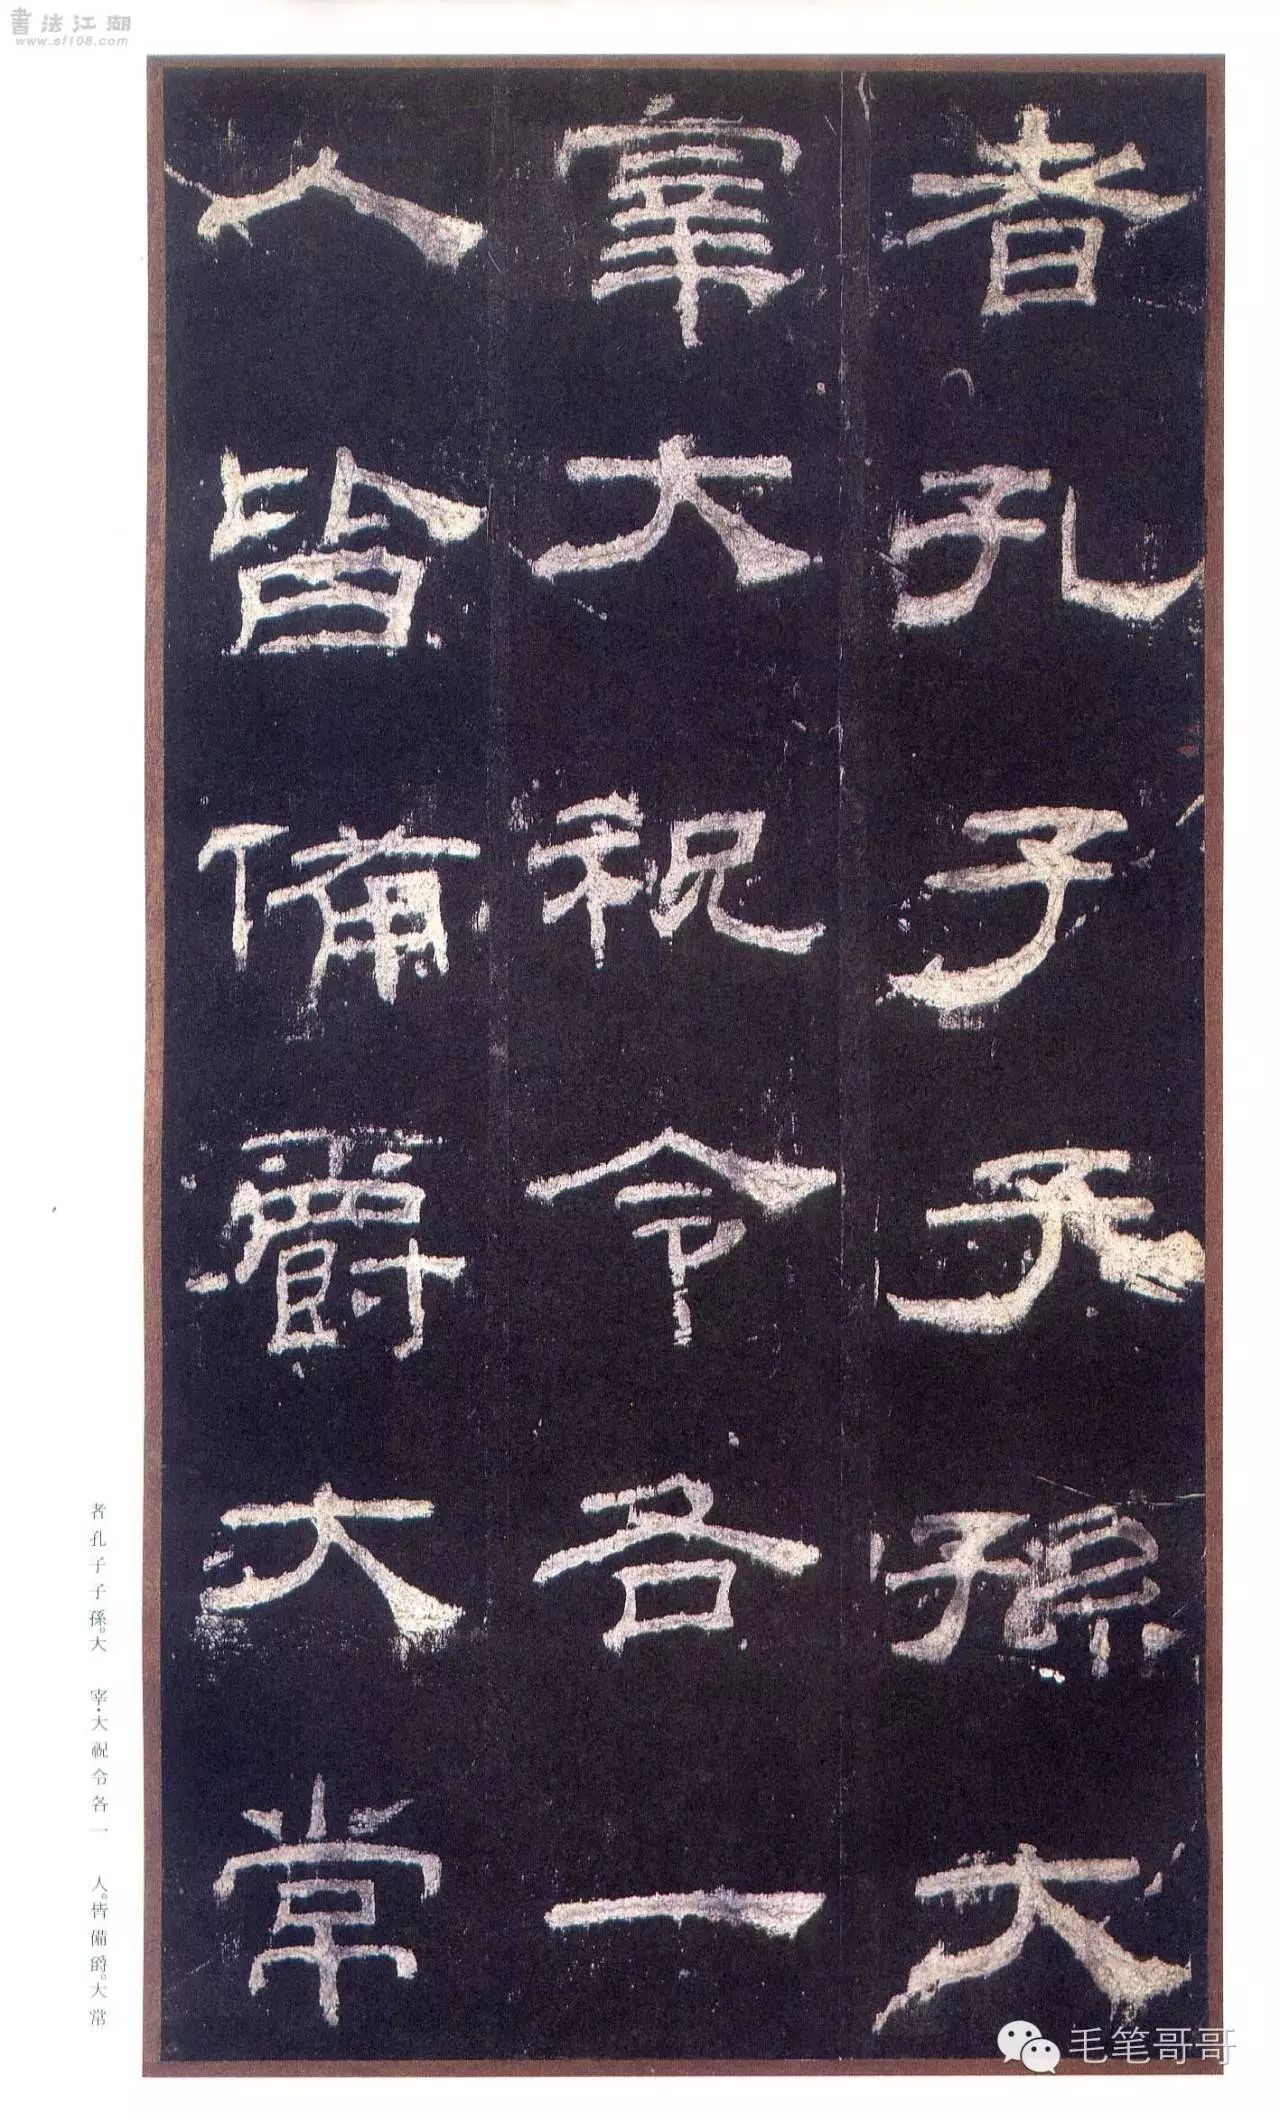 書法江湖
www.sf108.com
者孔子子孫大
宰大祝令各一
人皆備爵大常
者孔子子孫。大 宰·大祝令各一 人。皆備爵。大常
毛笔哥哥